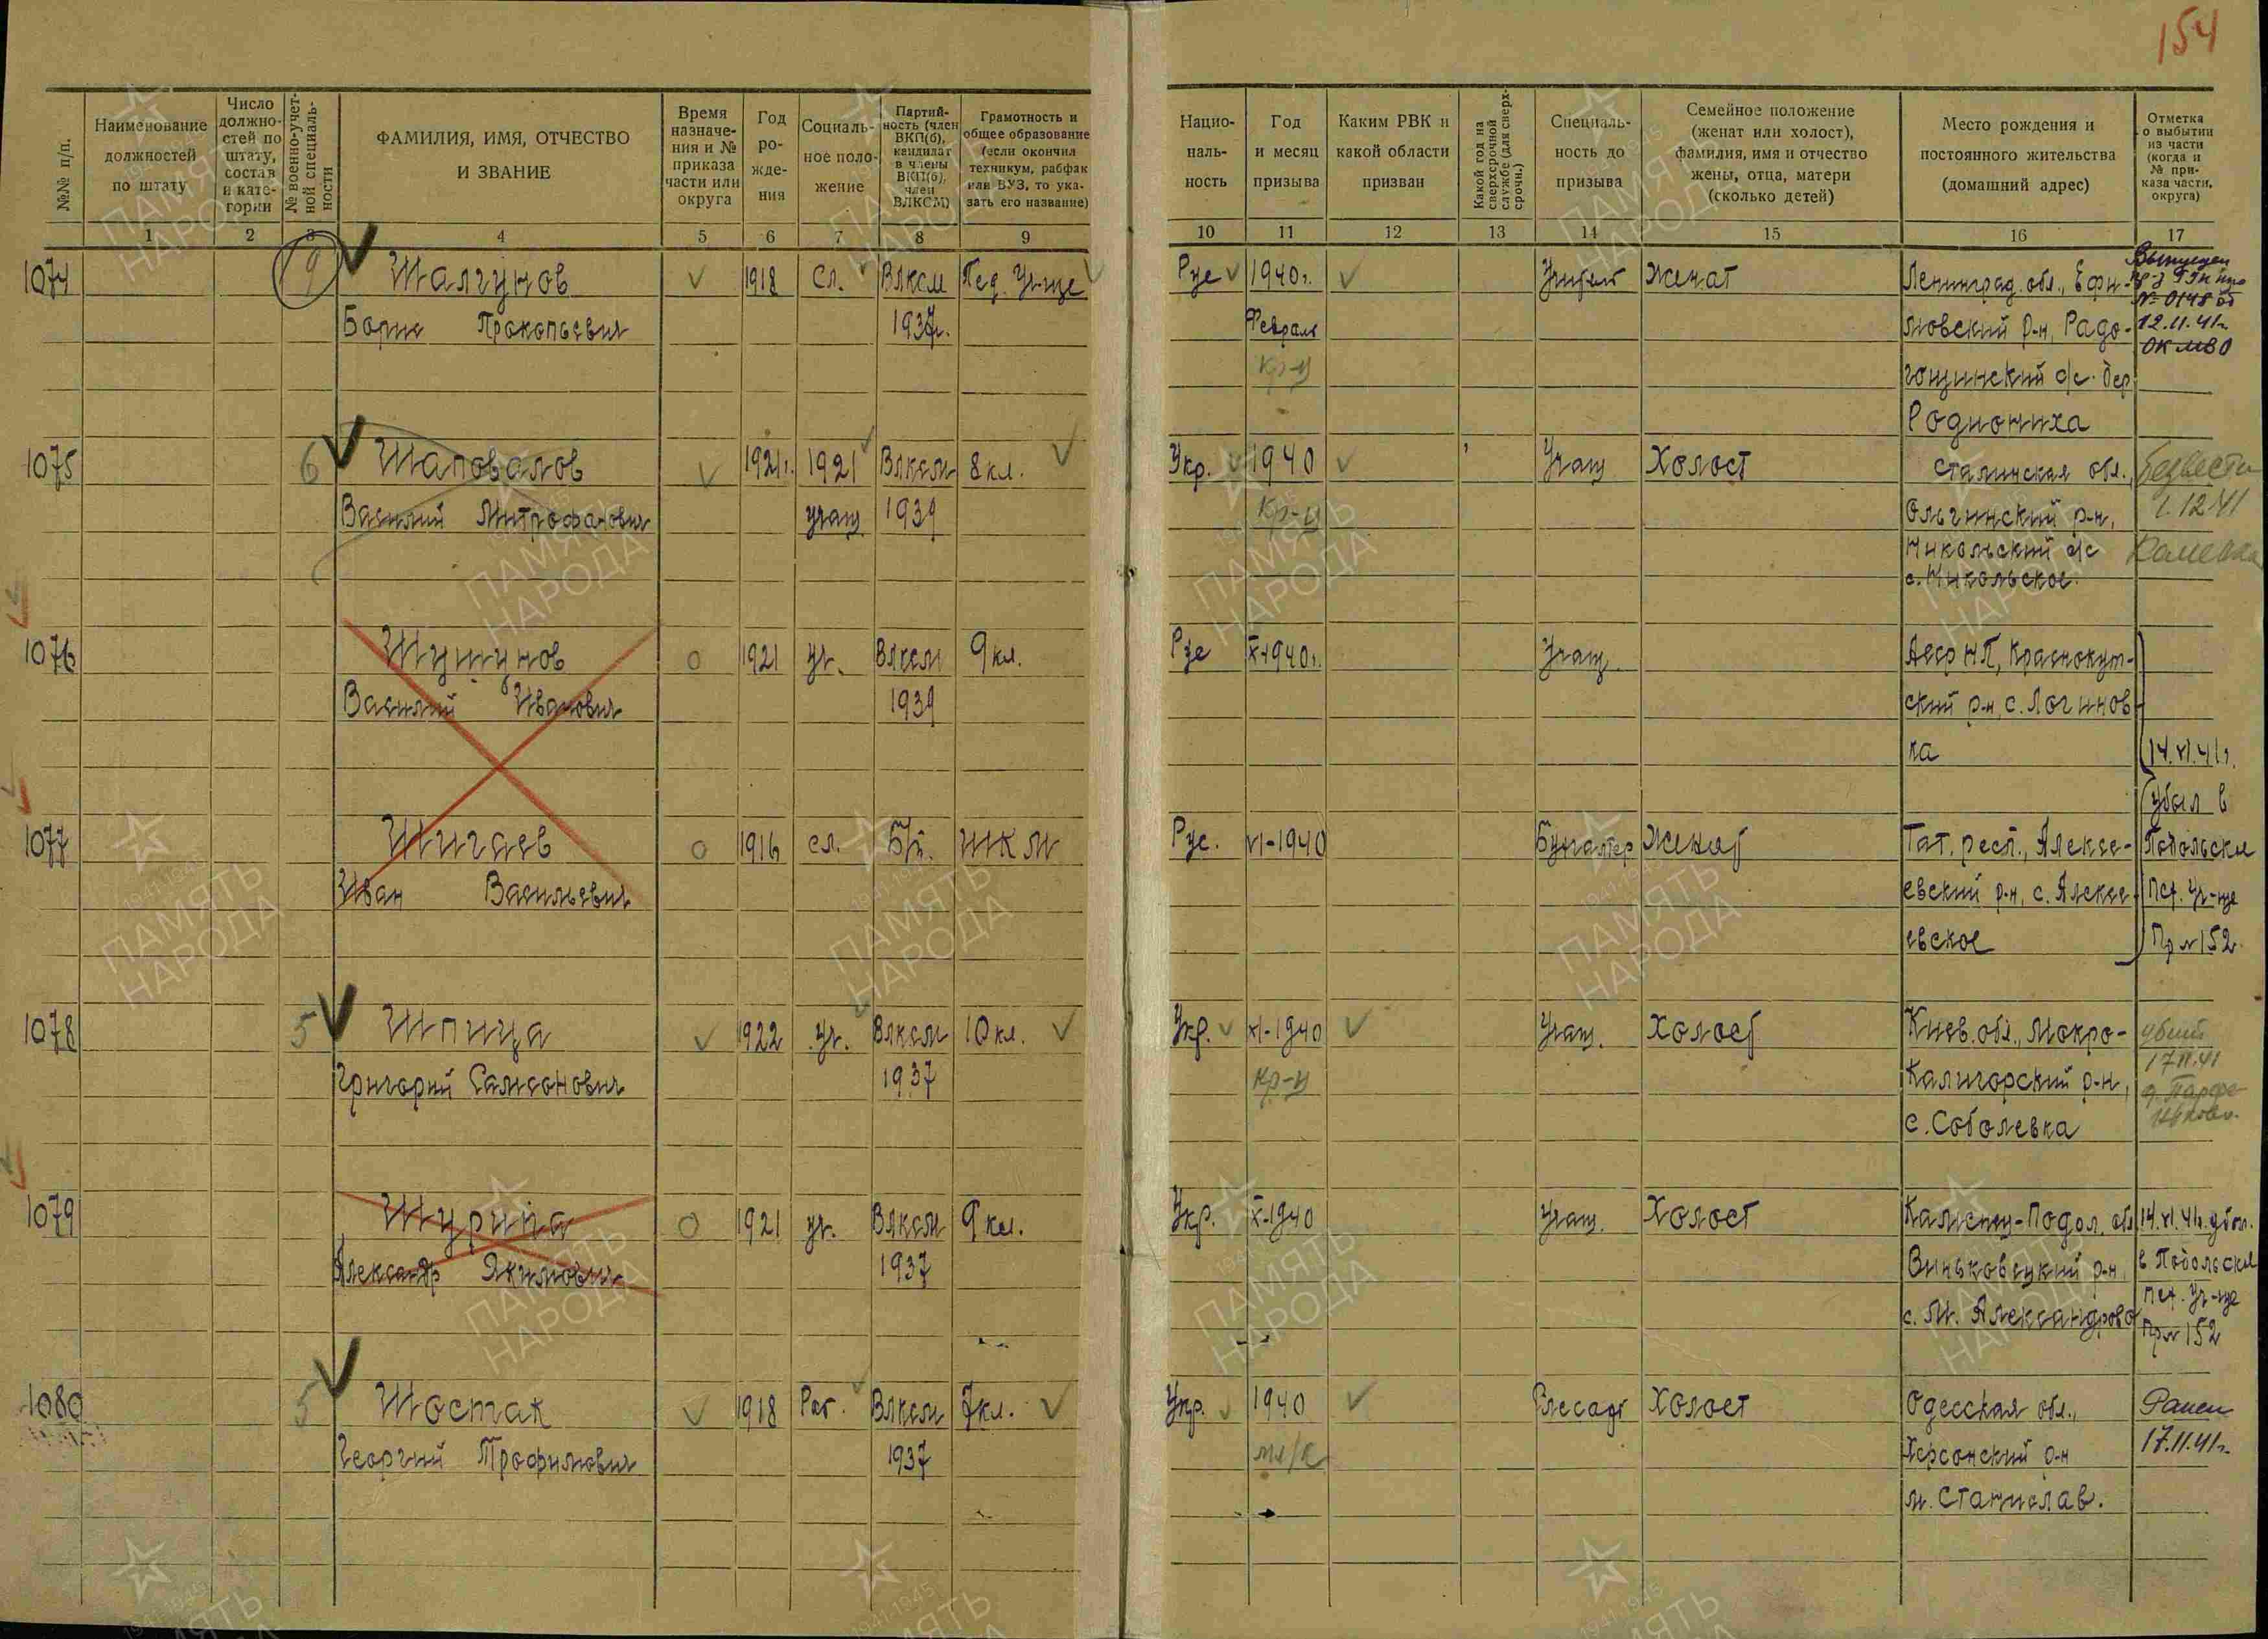 154
№№ п/п.
Наименование должностей по штату
Число должностей по штату, состав и категории
№ военно-учетной специальности
ФАМИЛИЯ, ИМЯ, ОТЧЕСТВО И ЗВАНИЕ
Время назначения и № приказа части или округа
Год рождения
Социальное положение
Партийность (член ВКП(б), кандидат в члены ВКП(б), член ВЛКСМ)
Грамотность и общее образование (если окончил техникум, рабфак или ВУЗ, то указать его название)
Национальность
Год и месяц призыва
Каким РВК и какой области призван
Какой год на сверхсрочной службе (для сверхсрочн.)
Специальность до призыва
Семейное положение (женат или холост), фамилия, имя и отчество жены, отца, матери (сколько детей)
Место рождения и постоянного жительства (домашний адрес)
Отметка о выбытии из части (когда и № приказа части, округа)
1 2 3 4 5 6 7 8 9 10 11 12 13 14 15 16 17
1074 9 Шалгунов 1918 сл. Влксм Пед. Уч-ще Рус 1940г. Женат Ленинград. обл., Ефи-
Борис Прокопьевич 1937г. Февраль мовский р-н, Радо-
№ 0148 от
12.11.41г.
ОК МВО
кр-ц гощинский с/с. дер.
Родиониха
1075 6 Шаповалов 1921г. 1921 Влксм 8 кл. Укр. 1940 Учащ Холост Сталинская обл., безвести
Василий Митрофанович учащ 1939 кр-ц Ольгинский р-н, 1.12.41
Никольский с/с
с. Никольское.
1076 Шушунов 1921 уч. Влксм 9 кл. Рус X-1940г. Учащ. Асср НП, Краснокут-
Василий Иванович 1939 ский р-н, с. Логинов
ка 14.XI.41г.
убыл в
1077 Шигаев 1916 сл. Б/п. ШКМ Рус. VI-1940 Бухгалтер Женат Тат. респ., Алексе- Подольское
Иван Васильевич евский р-н, с. Алексе- Пех. Уч-ще
евское Пр № 152
1078 5 Шпица 1922 уч. Влксм 10 кл. Укр. XI-1940 Учащ. Холост Киев. обл., Мокро- убит
Григорий Самсонович 1937 кр-ц Калигорский р-н, 17.11.41
с. Соболевка
1079 Шурипа 1921 уч. Влксм 9 кл. Укр. X-1940 Учащ. Холост Каменец-Подол. обл 14.XI.41г. убыл.
Александр Якимович 1937 Виньковецкий р-н, в Подольское
с. М. Александрово Пех. Уч-ще
Пр № 152
1080 5 Шостак 1918 Раб. Влксм 7 кл. Укр. 1940 Слесарь Холост Одесская обл., Ранен
Георгий Трофимович 1937 мл/к Херсонский р-н 17.11.41г.
м. Станислав.
ПАМЯТЬ НАРОДА
1941-1945